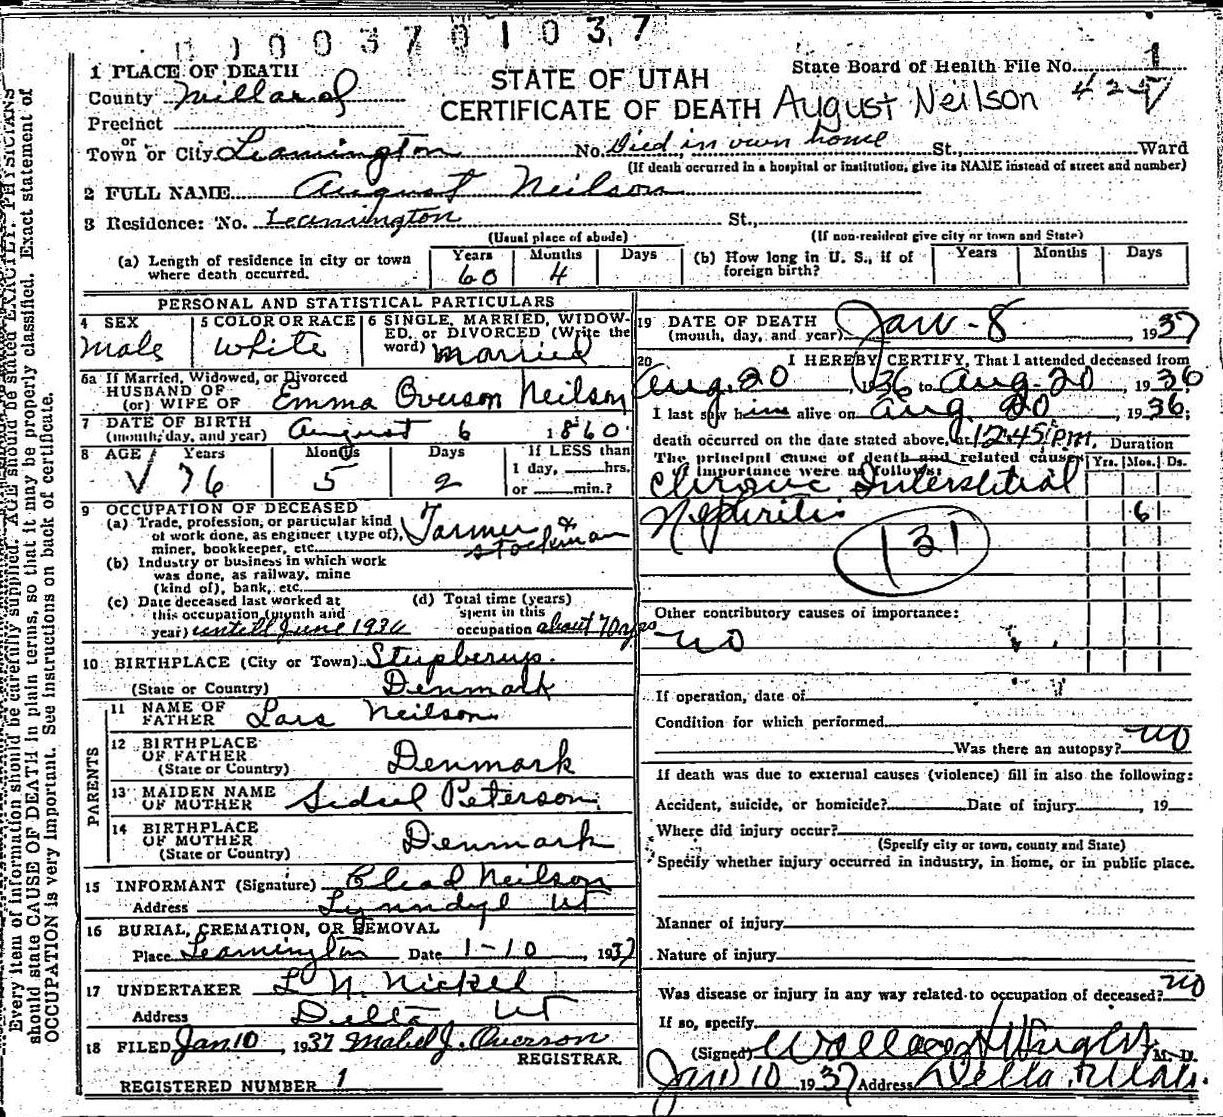 0003701037
1 PLACE OF DEATH
County Millard
Precinct
or
Town or City Leamington
STATE OF UTAH
CERTIFICATE OF DEATH August Neilson
State Board of Health File No. 1
No. Died in own home St., Ward
(If death occurred in a hospital or institution, give its NAME instead of street and number)
2 FULL NAME August Neilson
3 Residence: No. Leamington St.,
(Usual place of abode) (If non-resident give city or town and State)
(a) Length of residence in city or town where death occurred. Years 60 Months 4 Days
(b) How long in U. S., if of foreign birth? Years Months Days
PERSONAL AND STATISTICAL PARTICULARS
4 SEX Male
5 COLOR OR RACE White
6 SINGLE, MARRIED, WIDOWED, or DIVORCED (Write the word) Married
6a If Married, Widowed, or Divorced
HUSBAND OF
(or) WIFE OF Emma Overson Neilson
7 DATE OF BIRTH
(month, day, and year) August 6 1860
8 AGE Years 76 Months 5 Days 2 If LESS than 1 day, hrs. or min.?
9 OCCUPATION OF DECEASED
(a) Trade, profession, or particular kind of work done, as engineer (type of), miner, bookkeeper, etc. Farmer & stockman
(b) Industry or business in which work was done, as railway, mine (kind of), bank, etc.
(c) Date deceased last worked at this occupation (month and year) untill June 1936
(d) Total time (years) spent in this occupation about 70 yrs
10 BIRTHPLACE (City or Town)
(State or Country) Denmark
PARENTS
11 NAME OF FATHER Lars Neilson
12 BIRTHPLACE OF FATHER
(State or Country) Denmark
13 MAIDEN NAME OF MOTHER Sidsel Peterson
14 BIRTHPLACE OF MOTHER
(State or Country) Denmark
15 INFORMANT (Signature) Neilson
Address Lynndyl Ut
16 BURIAL, CREMATION, OR REMOVAL
Place Leamington Date 1-10, 1937
17 UNDERTAKER L N. Nickel
Address Delta Ut
18 FILED Jan 10, 1937 Mabel J. Overson
REGISTRAR.
REGISTERED NUMBER 1
19 DATE OF DEATH
(month, day, and year) Jan - 8, 1937
20 I HEREBY CERTIFY, That I attended deceased from
Aug. 20, 1936 to Aug. 20, 1936
I last saw him alive on Aug 20, 1936;
death occurred on the date stated above, at 12:45 P.M. Duration
The principal cause of death and related causes of importance were as follows: Yrs. Mos. Ds.
Chronic Interstitial
Nephritis 6
131
Other contributory causes of importance:
no
If operation, date of
Condition for which performed
Was there an autopsy? no
If death was due to external causes (violence) fill in also the following:
Accident, suicide, or homicide? Date of injury, 19
Where did injury occur?
(Specify city or town, county and State)
Specify whether injury occurred in industry, in home, or in public place.
Manner of injury
Nature of injury
Was disease or injury in any way related to occupation of deceased? no
If so, specify
(Signed) M. D.
Jan 10 1937 Address Delta, Utah.
Every item of information should be carefully supplied. AGE should be stated EXACTLY. PHYSICIANS
should state CAUSE OF DEATH in plain terms, so that it may be properly classified. Exact statement of
OCCUPATION is very important. See instructions on back of certificate.